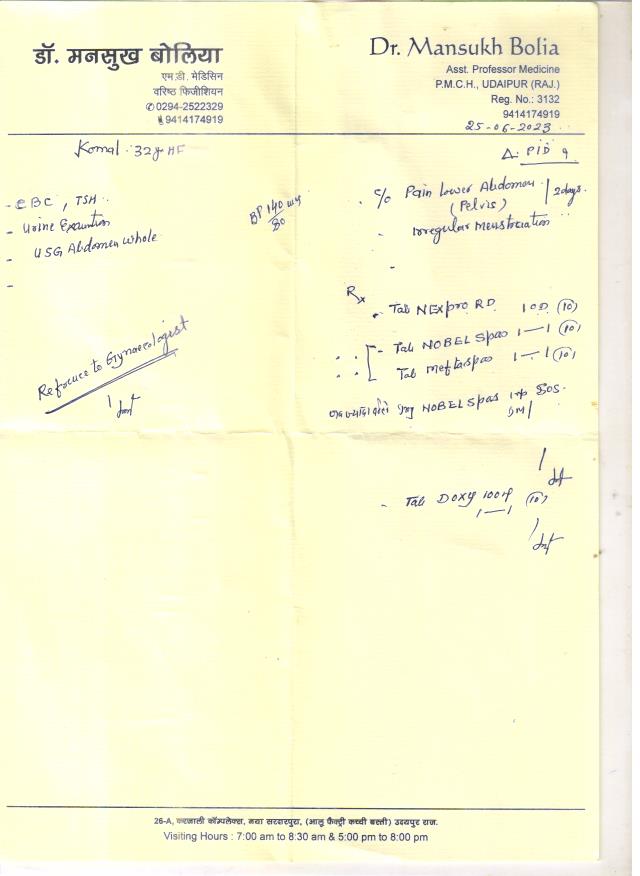 डॉ. मनसुख बोलिया
एम.डी. मेडिसिन
वरिष्ठ फिजीशियन
0294-2522329
9414174919
Dr. Mansukh Bolia
Asst. Professor Medicine
P.M.C.H., UDAIPUR (RAJ.)
Reg. No.: 3132
9414174919
25-06-2023
Komal 32y
Δ. PID
- CBC, TSH
- Urine
- USG Abdomen Whole
BP 140
80
c/o Pain Lower Abdomen
(Pelvis)
2 days.
- Irregular Menstruation
Rx
- Tab NEXpro RD 1 OD (10)
- Tab NOBEL Spas 1—1 (10)
Tab Meftaspas 1—1 (10)
NOBEL Spas SOS
Refrence to Gynaecologist
- Tab DOXY (10)
1—1
26-A, करजाली कॉम्पलेक्स, नया सरदारपुरा, (आलु फैक्ट्री कच्ची बस्ती) उदयपुर राज.
Visiting Hours : 7:00 am to 8:30 am & 5:00 pm to 8:00 pm